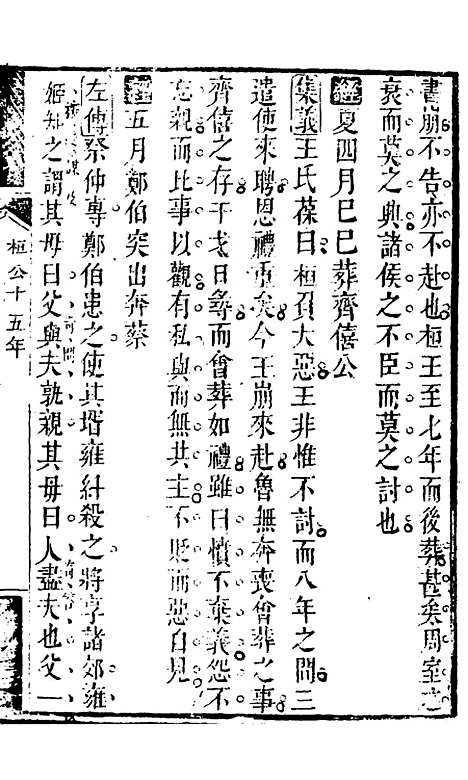 書崩不告亦不赴也桓王至七年而後葬甚矣周室之
衰而莫之與諸侯之不臣而莫之討也
經夏四月己巳葬齊僖公
集義王氏葆曰桓負大惡王非惟不討而八年之間三
遣使來聘恩禮重矣今王崩來赴魯無奔喪會葬之事
齊僖之存干戈日尋而會葬如禮雖曰憤不棄義怨不
忘親而比事以觀有私與而無共主不貶而惡自見
經五月鄭伯突出奔蔡
左傳祭仲專鄭伯患之使其壻雍糾殺之將享諸郊雍
姬知之謂其母曰父與夫孰親其母曰人盡夫也父一
桓公十五年